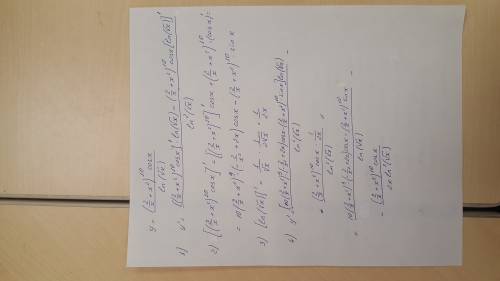 y = ((2/x + x²)^10 cosx) / ln(√x)
1) y' = ([(2/x + x²)^10 cosx]' ln(√x) - (2/x + x²)^10 cosx [ln(√x)]') / ln²(√x)
2) [(2/x + x²)^10 cosx]' = [(2/x + x²)^10]' cosx + (2/x + x²)^10 (cosx)' =
= 10(2/x + x²)^9 (-2/x² + 2x) cosx - (2/x + x²)^10 sinx
3) [ln(√x)]' = 1/√x · 1/(2√x) = 1/(2x)
4) y' = ([10(2/x + x²)^9 (-2/x² + 2x) cosx - (2/x + x²)^10 sinx] ln(√x)) / ln²(√x) -
- ((2/x + x²)^10 cosx · 1/(2x)) / ln²(√x) =
= (10(2/x + x²)^9 (-2/x² + 2x) cosx - (2/x + x²)^10 sinx) / ln(√x) -
- ((2/x + x²)^10 cosx) / (2x ln²(√x))